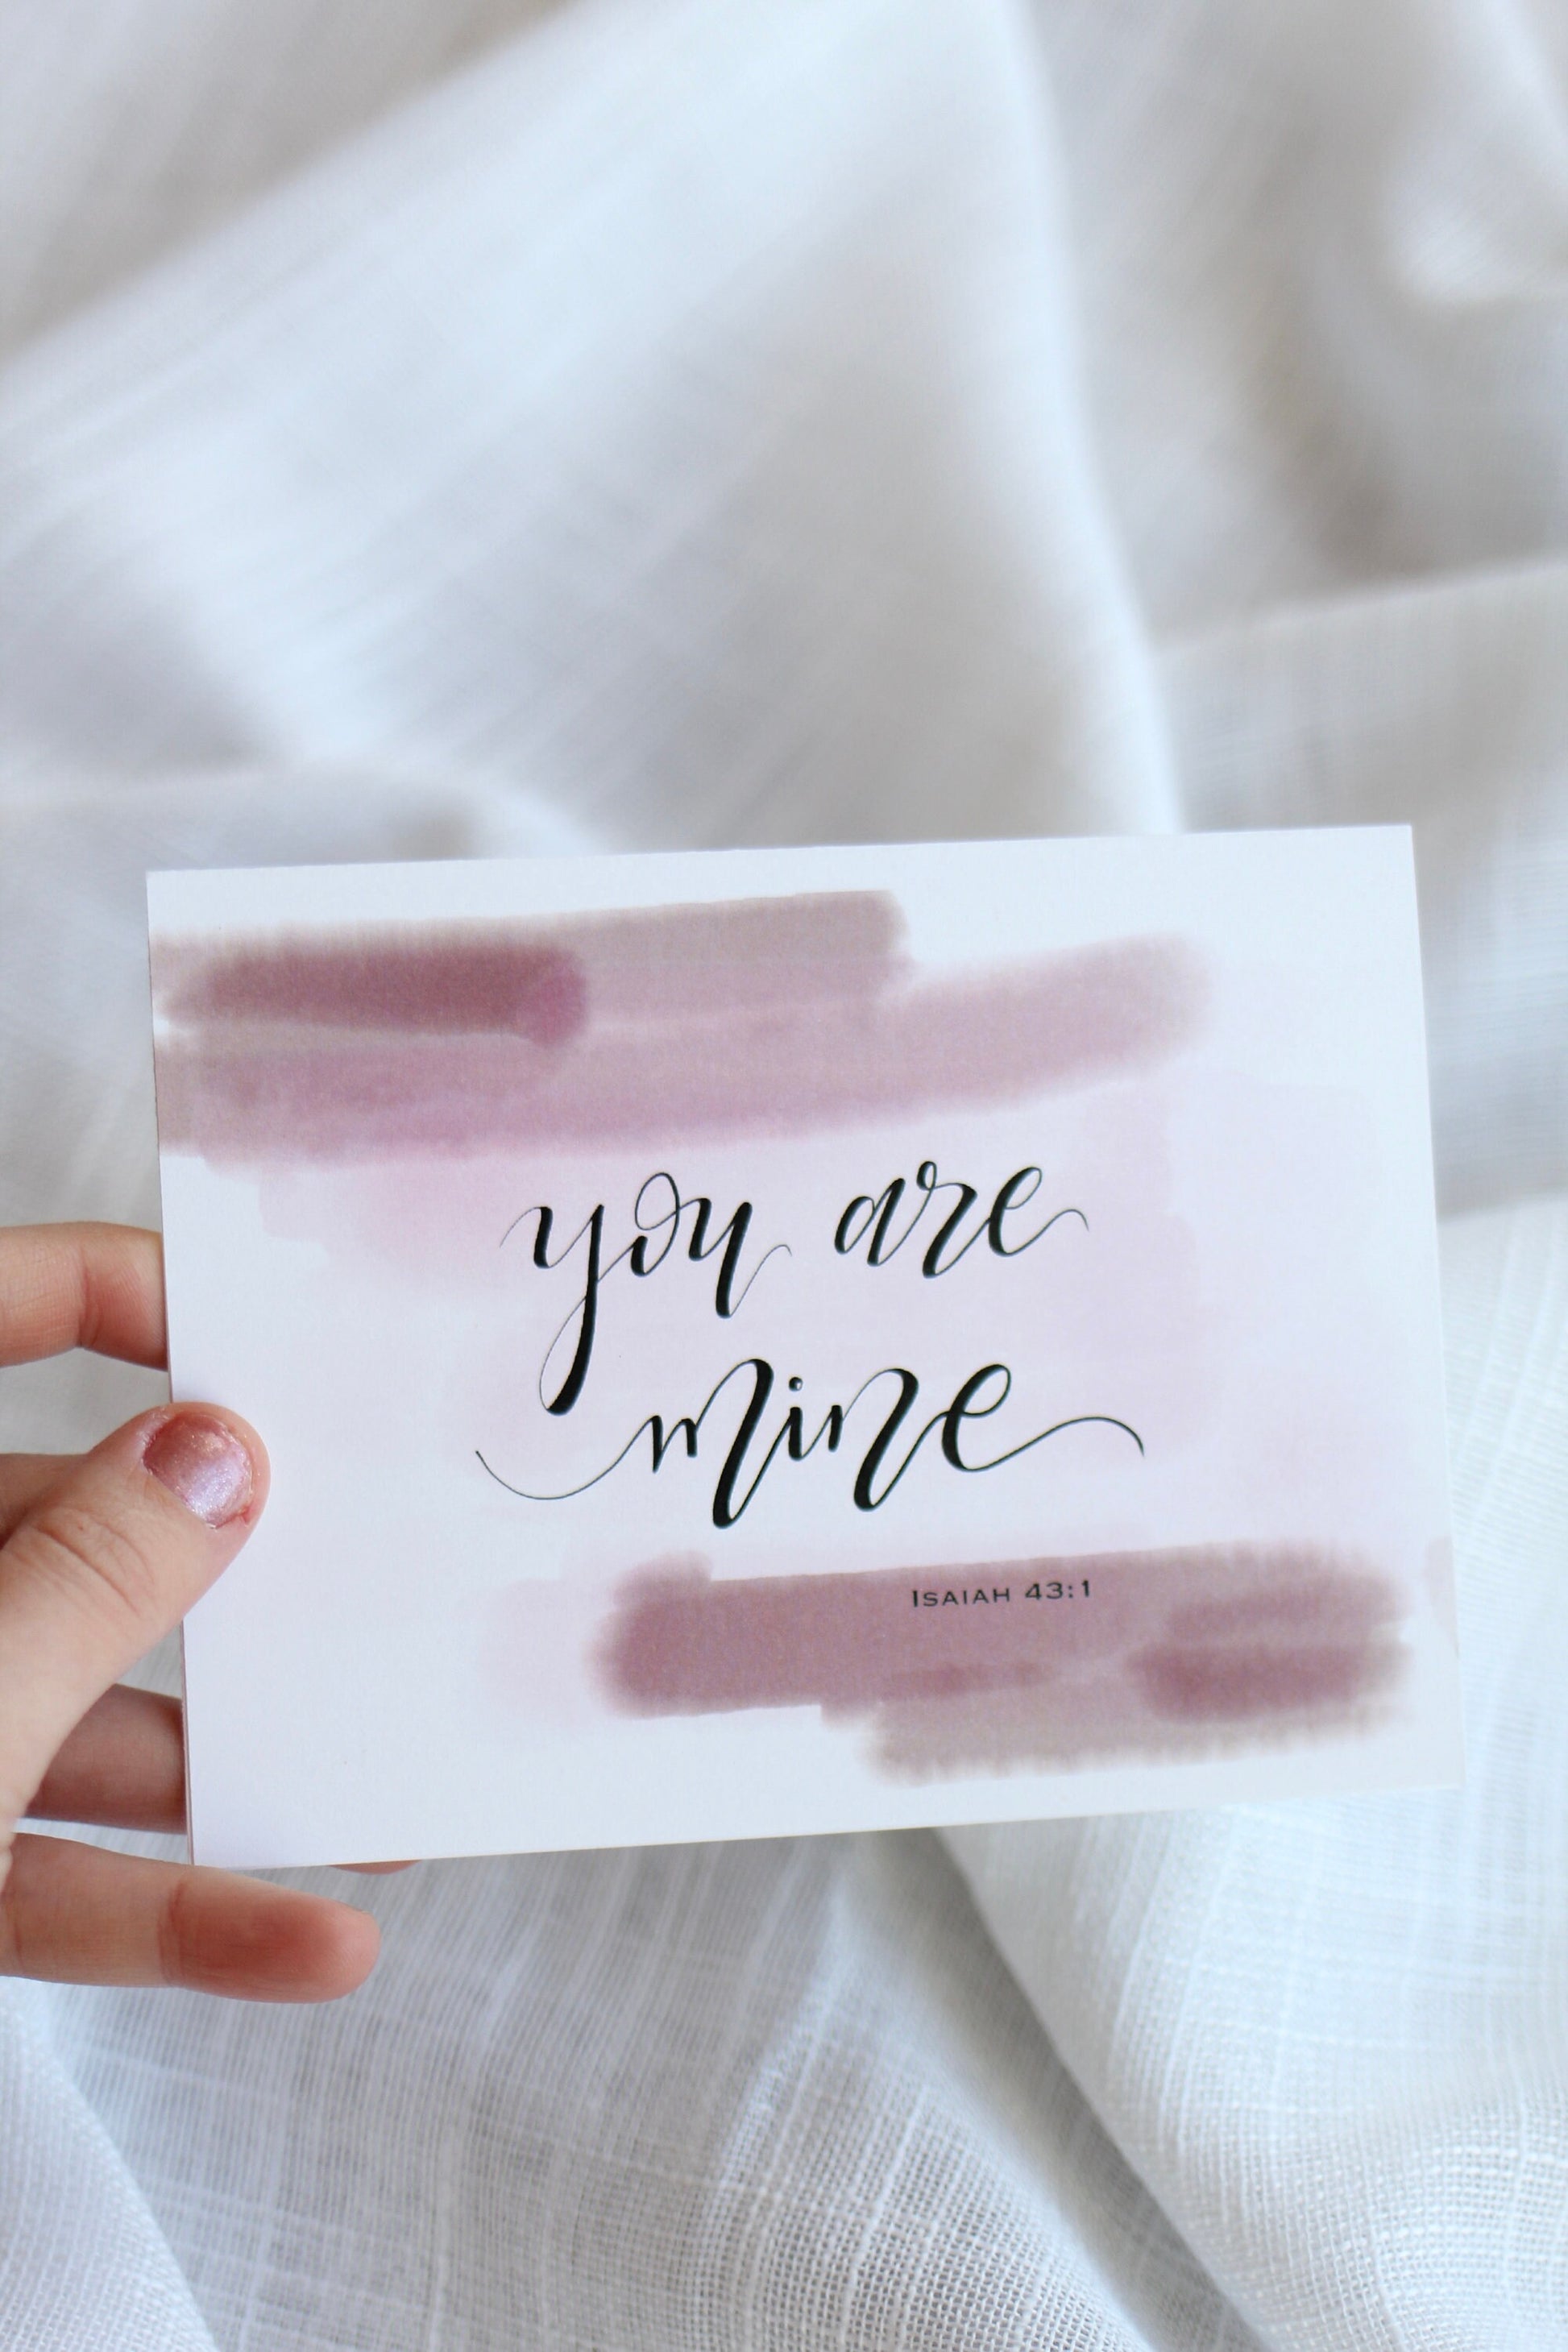 you are
mine
Isaiah 43:1